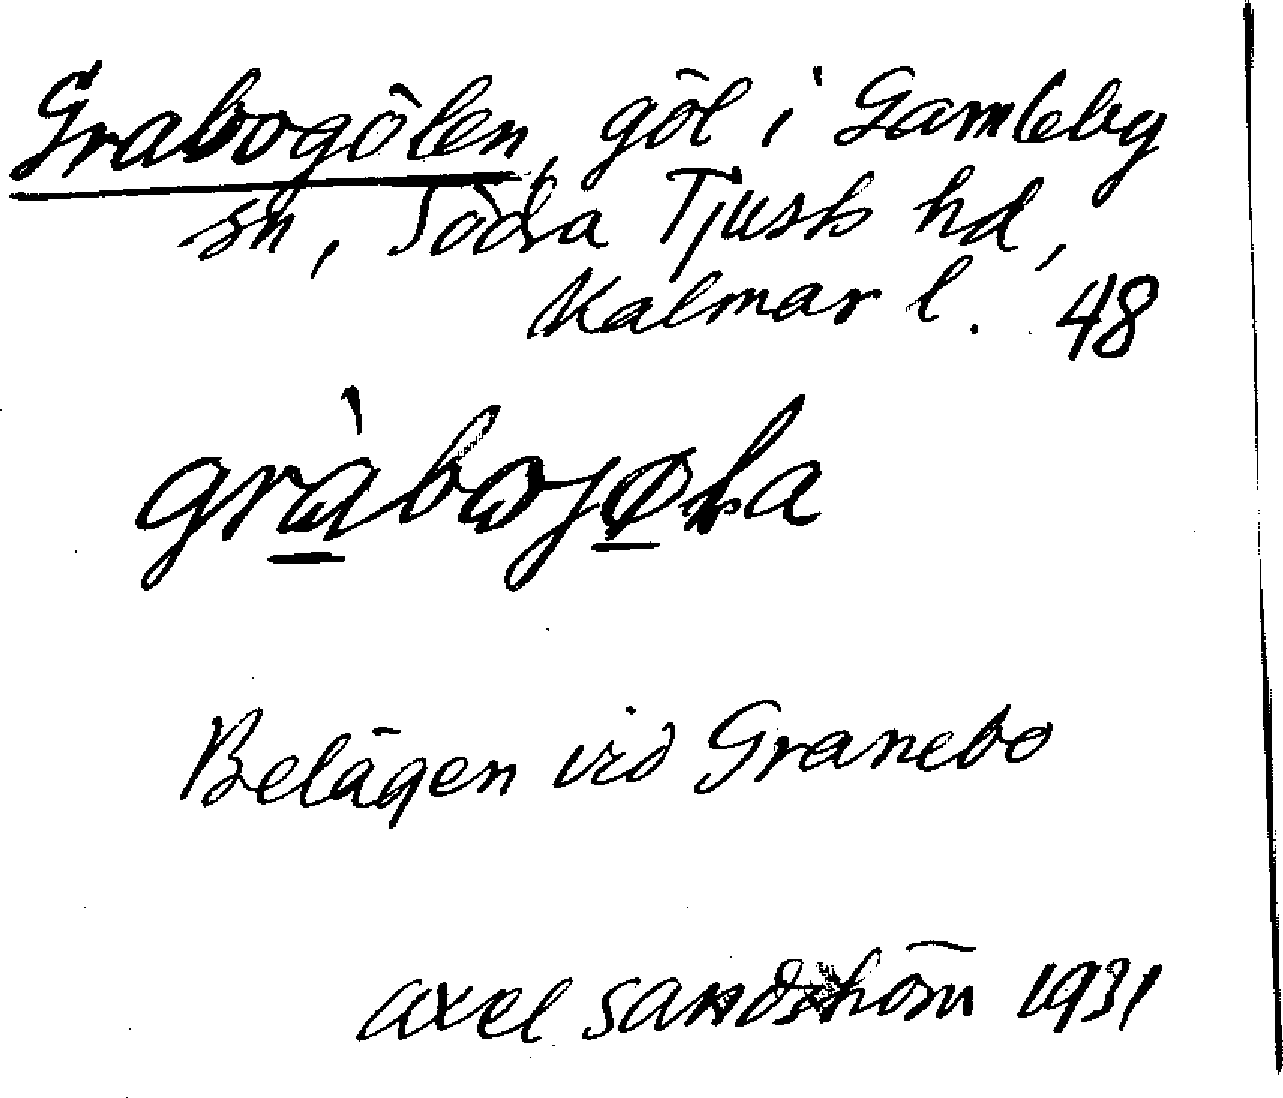 Grabogölen, göl i Gamleby
sn, Södra Tjusts hd,
Kalmar l. 48
Belägen vid Granebo
Axel Sandström 1931